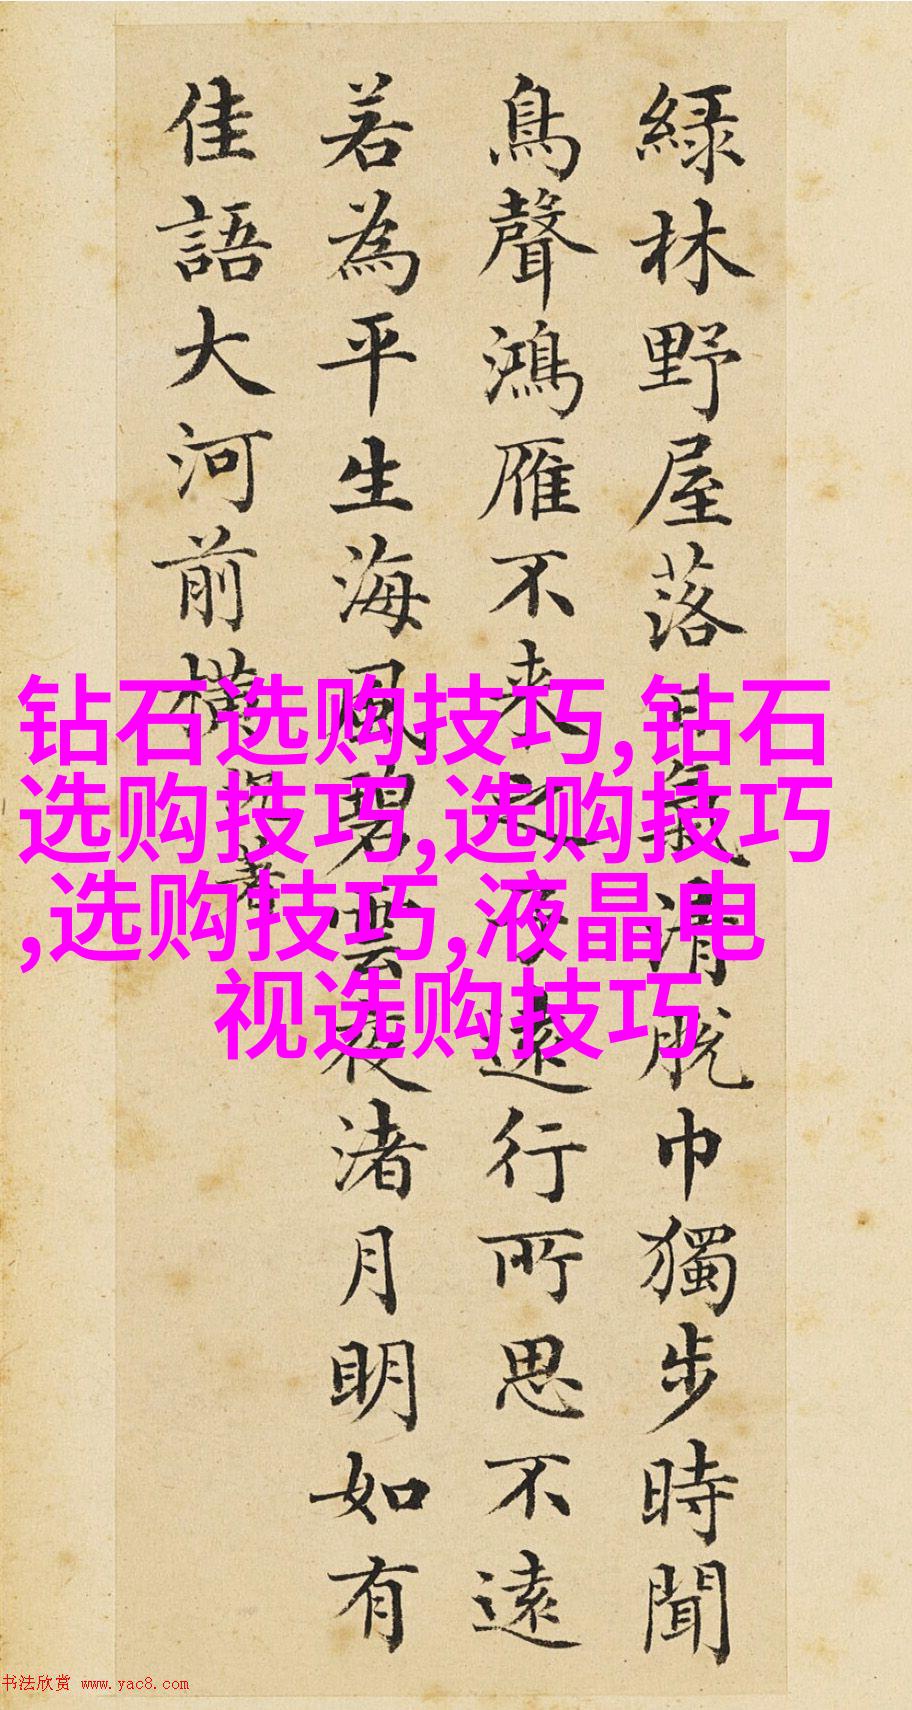 綠林野屋落日氣清脫巾獨步時聞
鳥聲鴻雁不來之子遠行所思不遠
若為平生海風碧雲夜渚月明如有
佳語大河前橫
钻石选购技巧,钻石
选购技巧,选购技巧
,选购技巧,液晶电
视选购技巧
书法欣赏 www.yac8.com